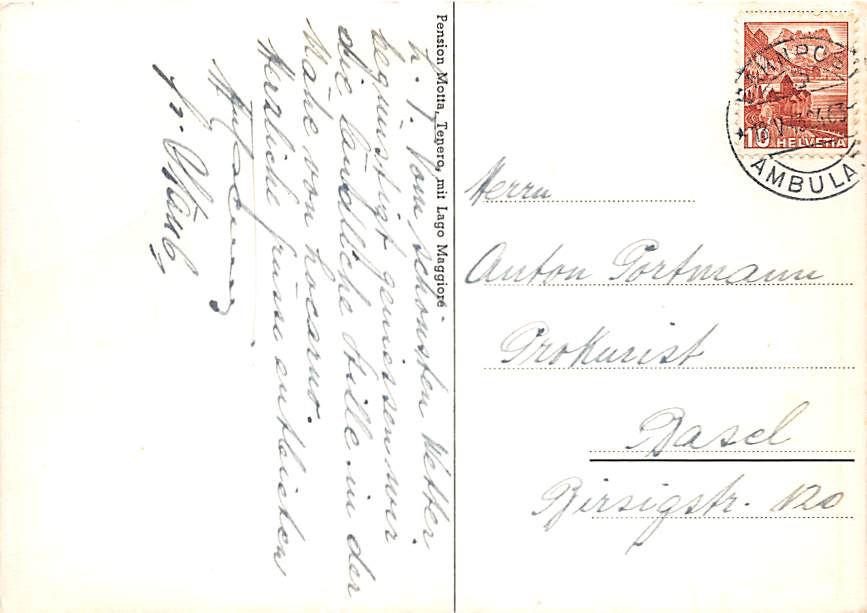 Pension Motta, Tenero, mit Lago Maggiore
L. T. Vom schönsten Wetter
begünstigt geniessen wir
die ländliche Stille in der
Nähe von Locarno.
Herzliche Grüsse entbieten
Fr.
BAHNPOST
AMBULA
10 HELVETIA
Herrn
Anton Portmann
Prokurist
Basel
Birsigstr. 120